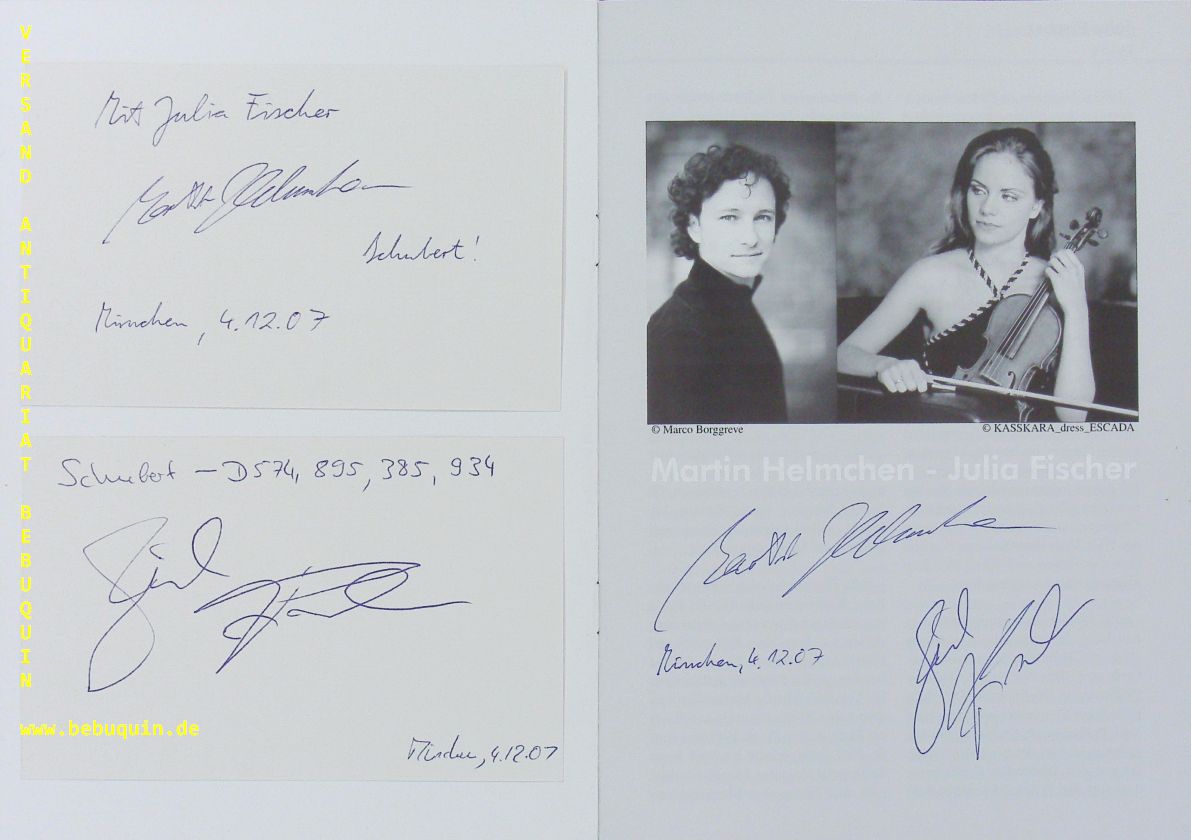 VERSAND ANTIQUARIAT BEBUQUIN
www.bebuquin.de
Mit Julia Fischer
Martin Helmchen
Schubert!
München, 4.12.07
Schubert – D574, 895, 385, 934
Julia Fischer
München, 4.12.07
© Marco Borggreve
© KASSKARA_dress_ESCADA
Martin Helmchen - Julia Fischer
Martin Helmchen
München, 4.12.07
Julia Fischer